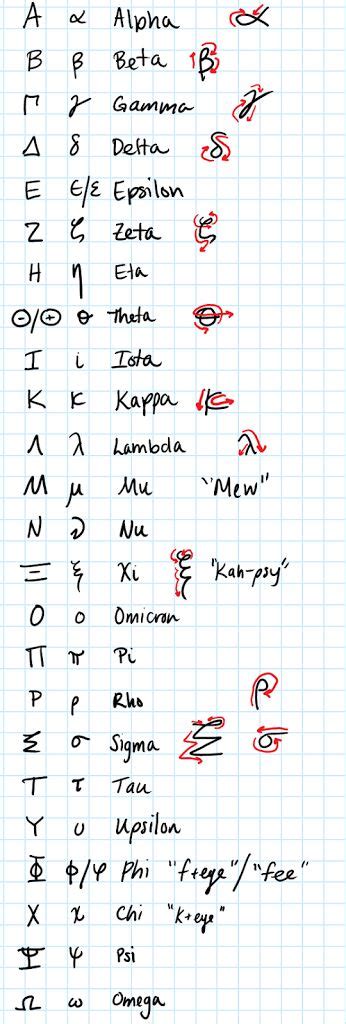 Α α Alpha α
Β β Beta β
Γ γ Gamma γ
Δ δ Delta δ
Ε ϵ/ε Epsilon
Ζ ζ Zeta ζ
Η η Eta
Θ/Θ θ Theta θ
Ι i Iota
Κ κ Kappa κ
Λ λ Lambda λ
Μ μ Mu "Mew"
Ν ν Nu
Ξ ξ Xi ξ "Kah-psy"
Ο ο Omicron
Π π Pi
Ρ ρ Rho ρ
Σ σ Sigma Σ σ
Τ τ Tau
Υ υ Upsilon
Φ ϕ/φ Phi "f+eye"/"fee"
Χ χ Chi "k+eye"
Ψ ψ Psi
Ω ω Omega